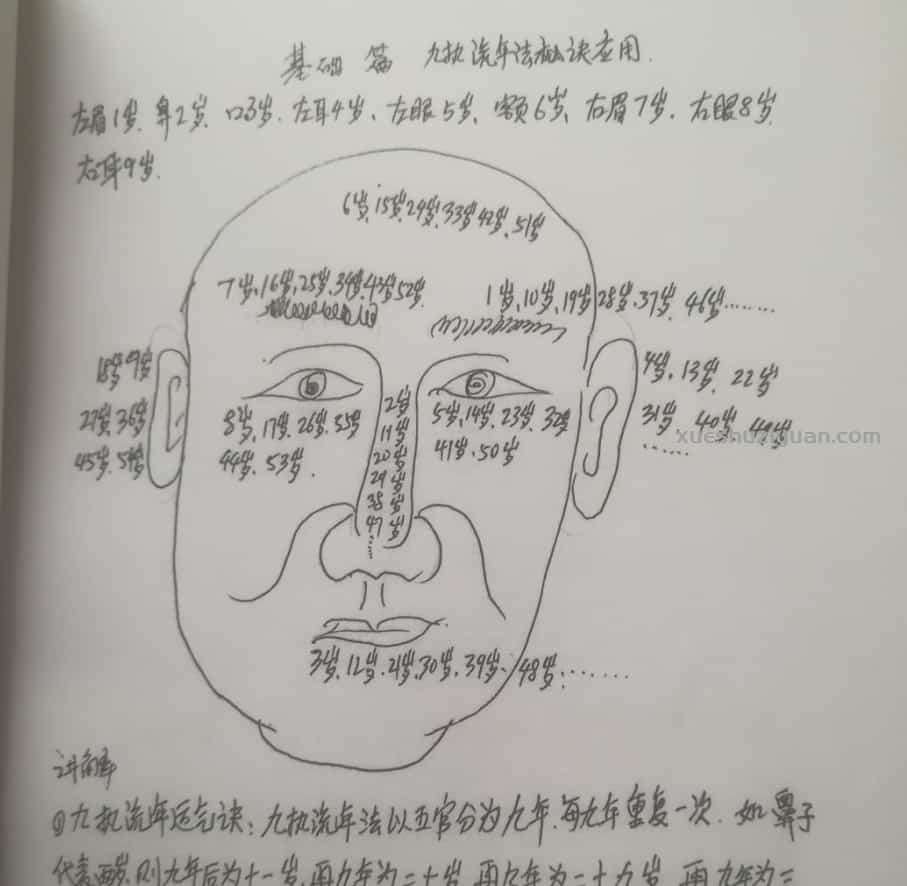 基础篇 九执流年法秘诀应用.
左眉1岁.鼻2岁、口3岁.左耳4岁、左眼5岁、额6岁、右眉7岁.右眼8岁.
右耳9岁.
6岁、15岁、24岁、33岁、42岁、51岁
7岁、16岁、25岁、34岁、43岁、52岁
1岁、10岁、19岁、28岁、37岁、46岁……
18岁9岁
27岁、36岁
45岁、54岁
4岁、13岁、22岁
31岁、40岁、49岁
……
8岁、17岁、26岁、35岁
44岁、53岁.
2岁
11岁
20岁
29岁
38岁
47岁
……
5岁、14岁、23岁、32岁
41岁、50岁
xueshuziyuan.com
3岁、12岁、21岁、30岁、39岁、48岁……
讲解
①九执流年运气诀：九执流年法以五官分为九年.每九年重复一次.如鼻子
代表两岁.则九年后为十一岁.再九年为二十岁.再九年为二十九岁.再九年为三